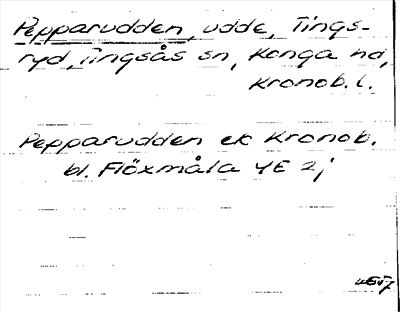 Pepparudden, udde, Tings-
ryd, Tingsås sn, Konga hd,
Kronob. l.
Pepparudden ek Kronob.
bl. Flöxmåla 4E 2j